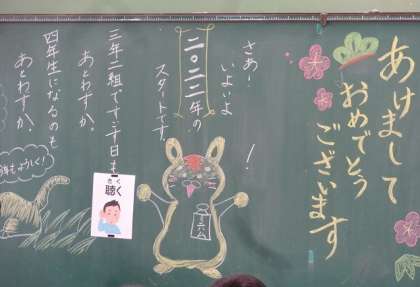 あけまして
おめでとう
ございます
さぁー
いよいよ
二〇二二年の
スタートです!
三年二組ですごす日も
あとわずか。
四年生になるのも
あとわずか。
きく
聴く